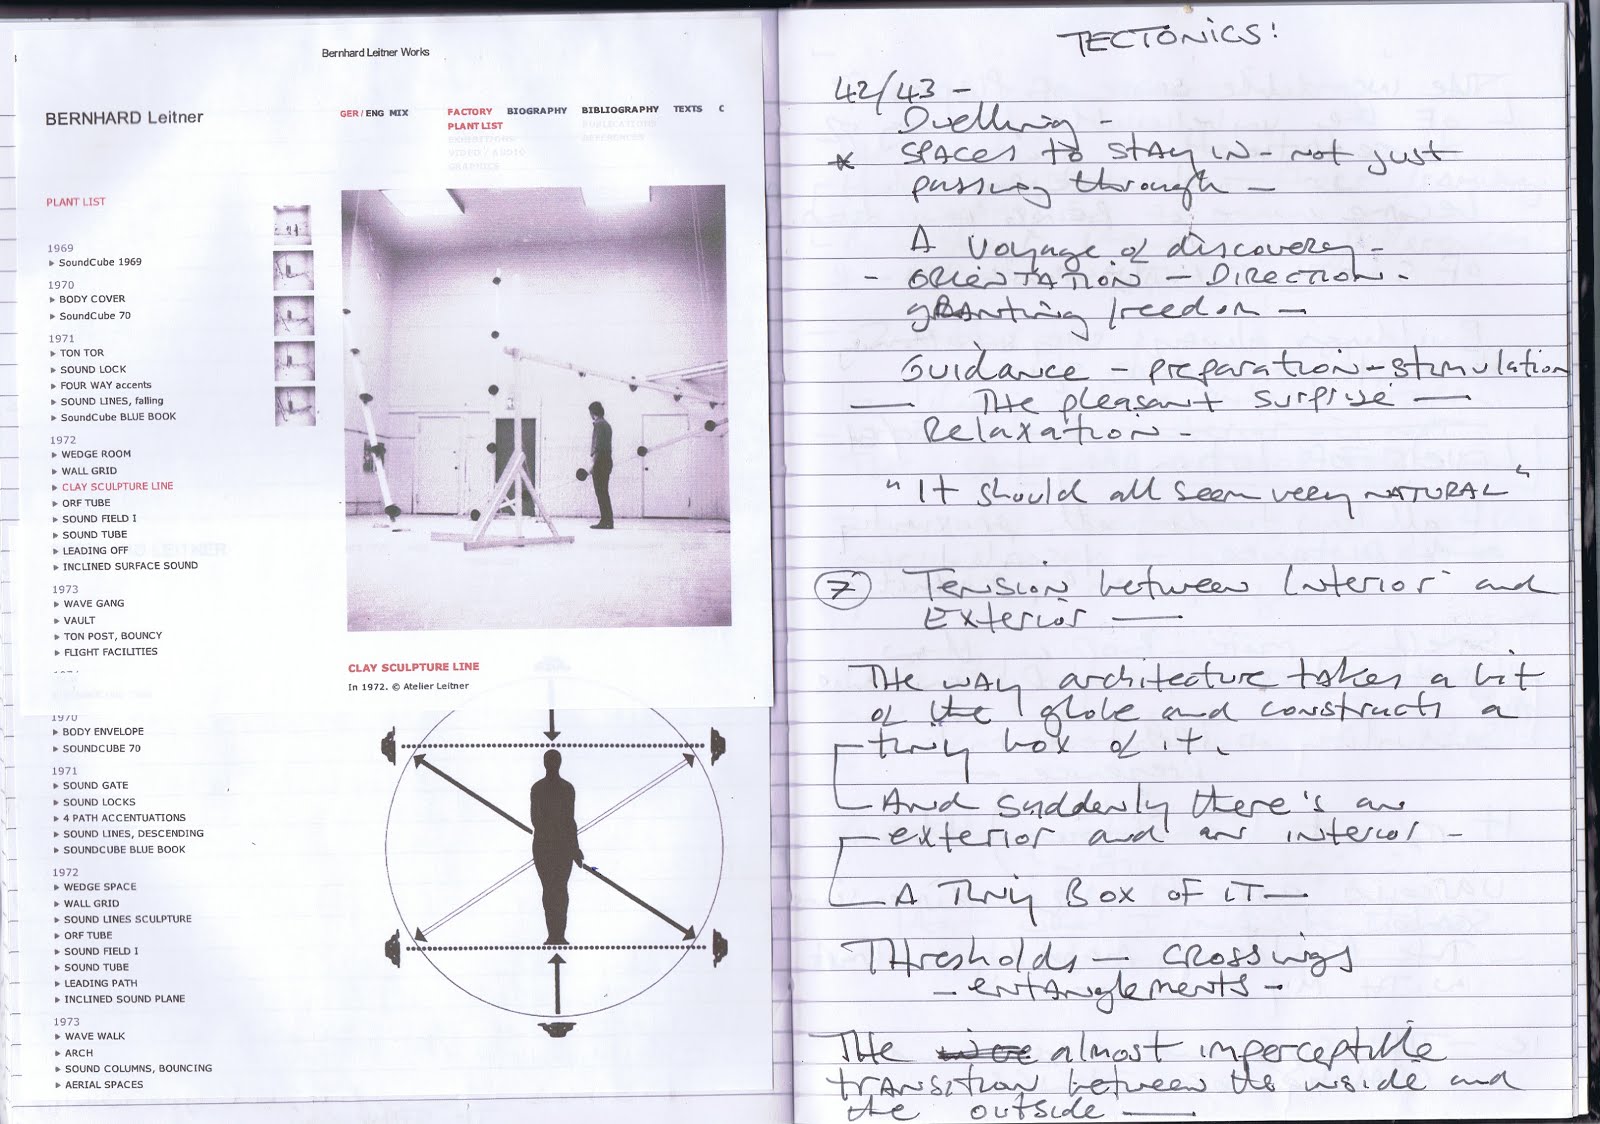 Bernhard Leitner Works
BERNHARD Leitner
GER / ENG MIX
FACTORY BIOGRAPHY BIBLIOGRAPHY TEXTS C
PLANT LIST PUBLICATIONS
EXHIBITIONS REFERENCES
VIDEO / AUDIO
GRAPHICS
PLANT LIST
1969
SoundCube 1969
1970
BODY COVER
SoundCube 70
1971
TON TOR
SOUND LOCK
FOUR WAY accents
SOUND LINES, falling
SoundCube BLUE BOOK
1972
WEDGE ROOM
WALL GRID
CLAY SCULPTURE LINE
ORF TUBE
SOUND FIELD I
SOUND TUBE
LEADING OFF
INCLINED SURFACE SOUND
1973
WAVE GANG
VAULT
TON POST, BOUNCY
FLIGHT FACILITIES
CLAY SCULPTURE LINE
In 1972. © Atelier Leitner
1970
BODY ENVELOPE
SOUNDCUBE 70
1971
SOUND GATE
SOUND LOCKS
4 PATH ACCENTUATIONS
SOUND LINES, DESCENDING
SOUNDCUBE BLUE BOOK
1972
WEDGE SPACE
WALL GRID
SOUND LINES SCULPTURE
ORF TUBE
SOUND FIELD I
SOUND TUBE
LEADING PATH
INCLINED SOUND PLANE
1973
WAVE WALK
ARCH
SOUND COLUMNS, BOUNCING
AERIAL SPACES
TECTONICS!
42/43 -
Dwelling -
* SPACES to STAY IN - not just
passing through -
A voyage of discovery -
- ORIENTATION - DIRECTION -
gRAnting freedom -
Guidance - preparation - stimulation
— THE pleasant surprise —
Relaxation -
"It should all seem very NATURAL"
7 Tension between Interior and
Exterior —
THE WAY architecture takes a bit
of the globe and constructs a
tiny box of it.
And suddenly there's an
exterior and an interior -
A TINY BOX OF IT —
THresholds - CROSSINGS
- entANglements -
THE almost imperceptible
trANsition between the inside and
the outside —